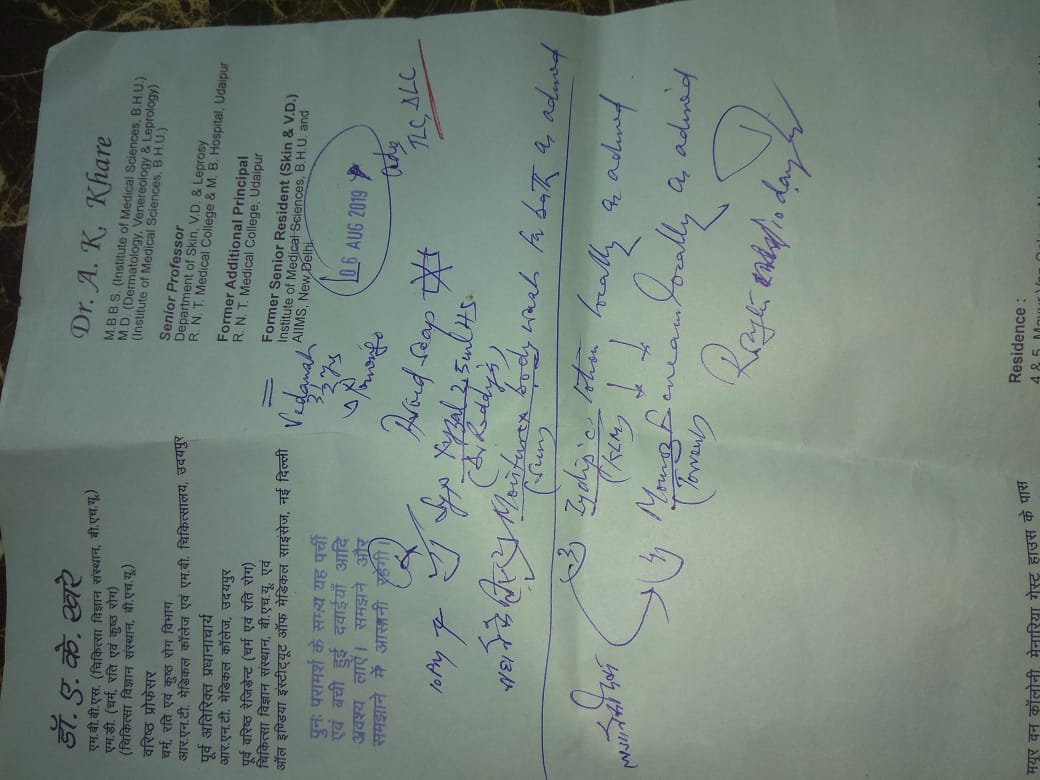 डॉ. ए. के. खरे
एम.बी.बी.एस. (चिकित्सा विज्ञान संस्थान, बी.एच.यू.)
एम.डी. (चर्म, रति एवं कुष्ठ रोग)
(चिकित्सा विज्ञान संस्थान, बी.एच.यू.)
वरिष्ठ प्रोफेसर
चर्म, रति एवं कुष्ठ रोग विभाग
आर.एन.टी. मेडिकल कॉलेज एवं एम.बी. चिकित्सालय, उदयपुर
पूर्व अतिरिक्त प्रधानाचार्य
आर.एन.टी. मेडिकल कॉलेज, उदयपुर
पूर्व वरिष्ठ रेजिडेन्ट (चर्म एवं रति रोग)
चिकित्सा विज्ञान संस्थान, बी.एच.यू. एवं
ऑल इण्डिया इंस्टीट्यूट ऑफ मेडिकल साइंसेज, नई दिल्ली
Dr. A. K. Khare
M.B.B.S. (Institute of Medical Sciences, B.H.U.)
M.D. (Dermatology, Venereology & Leprology)
(Institute of Medical Sciences, B H.U.)
Senior Professor
Department of Skin, V.D. & Leprosy
R. N. T. Medical College & M. B. Hospital, Udaipur
Former Additional Principal
R. N. T. Medical College, Udaipur
Former Senior Resident (Skin & V.D.)
Institute of Medical Sciences, B.H.U. and
AIIMS, New Delhi
पुनः परामर्श के समय यह पर्ची
एवं बची हुई दवाईयाँ आदि
अवश्य लाऐं। समझने और
समझाने में आसानी रहेगी।
06 AUG 2019
Adv
TLC, DLC
Avoid soap
Syp Xyzal 2.5ml HS
(Dr Reddy's)
Moisturex body wash for bath as advised
(Sun)
(3) lotion locally as advised
(4) locally as advised
(Torrent)
Residence :
मयूर वन कॉलोनी मेनारिया गेस्ट हाउस के पास